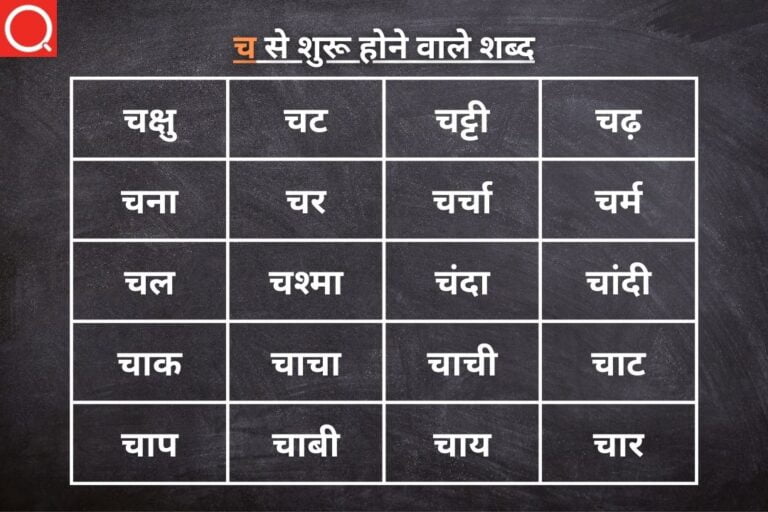 च से शुरू होने वाले शब्द
चक्षु चट चट्टी चढ़
चना चर चर्चा चर्म
चल चश्मा चंदा चांदी
चाक चाचा चाची चाट
चाप चाबी चाय चार